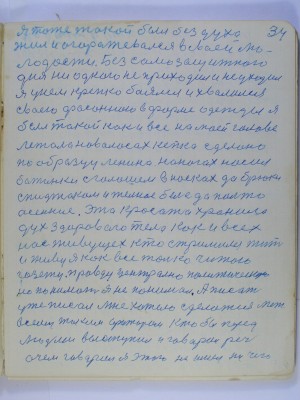 34
Я тоже такой был без духа
жил и огораживался в своей мо-
лодости. Без самозащитного
дня ни одного не приходил и не уходил
Я у нем крепко боялся и хвалился
своею фасонного в форме одежде я
был такой как и все на моей голове
на волосах кепка сделано
по образцу ленина на ногах носил
ботинки с галошем в носках да брюки
с пиджаком и теплое белье да пальто
осенние. Эта красота хранила
дух здорового тела как и всех
нас живущих кто стремился жить
и живу я как все только читаю
газету, правду центрально политически
не понимал я не понимал. А писать
уже писал мне хотело сделаться
всем таким оратором кто бы перед
людьми выступил и говорил реч
о чем говорил я этого не имел ни чего